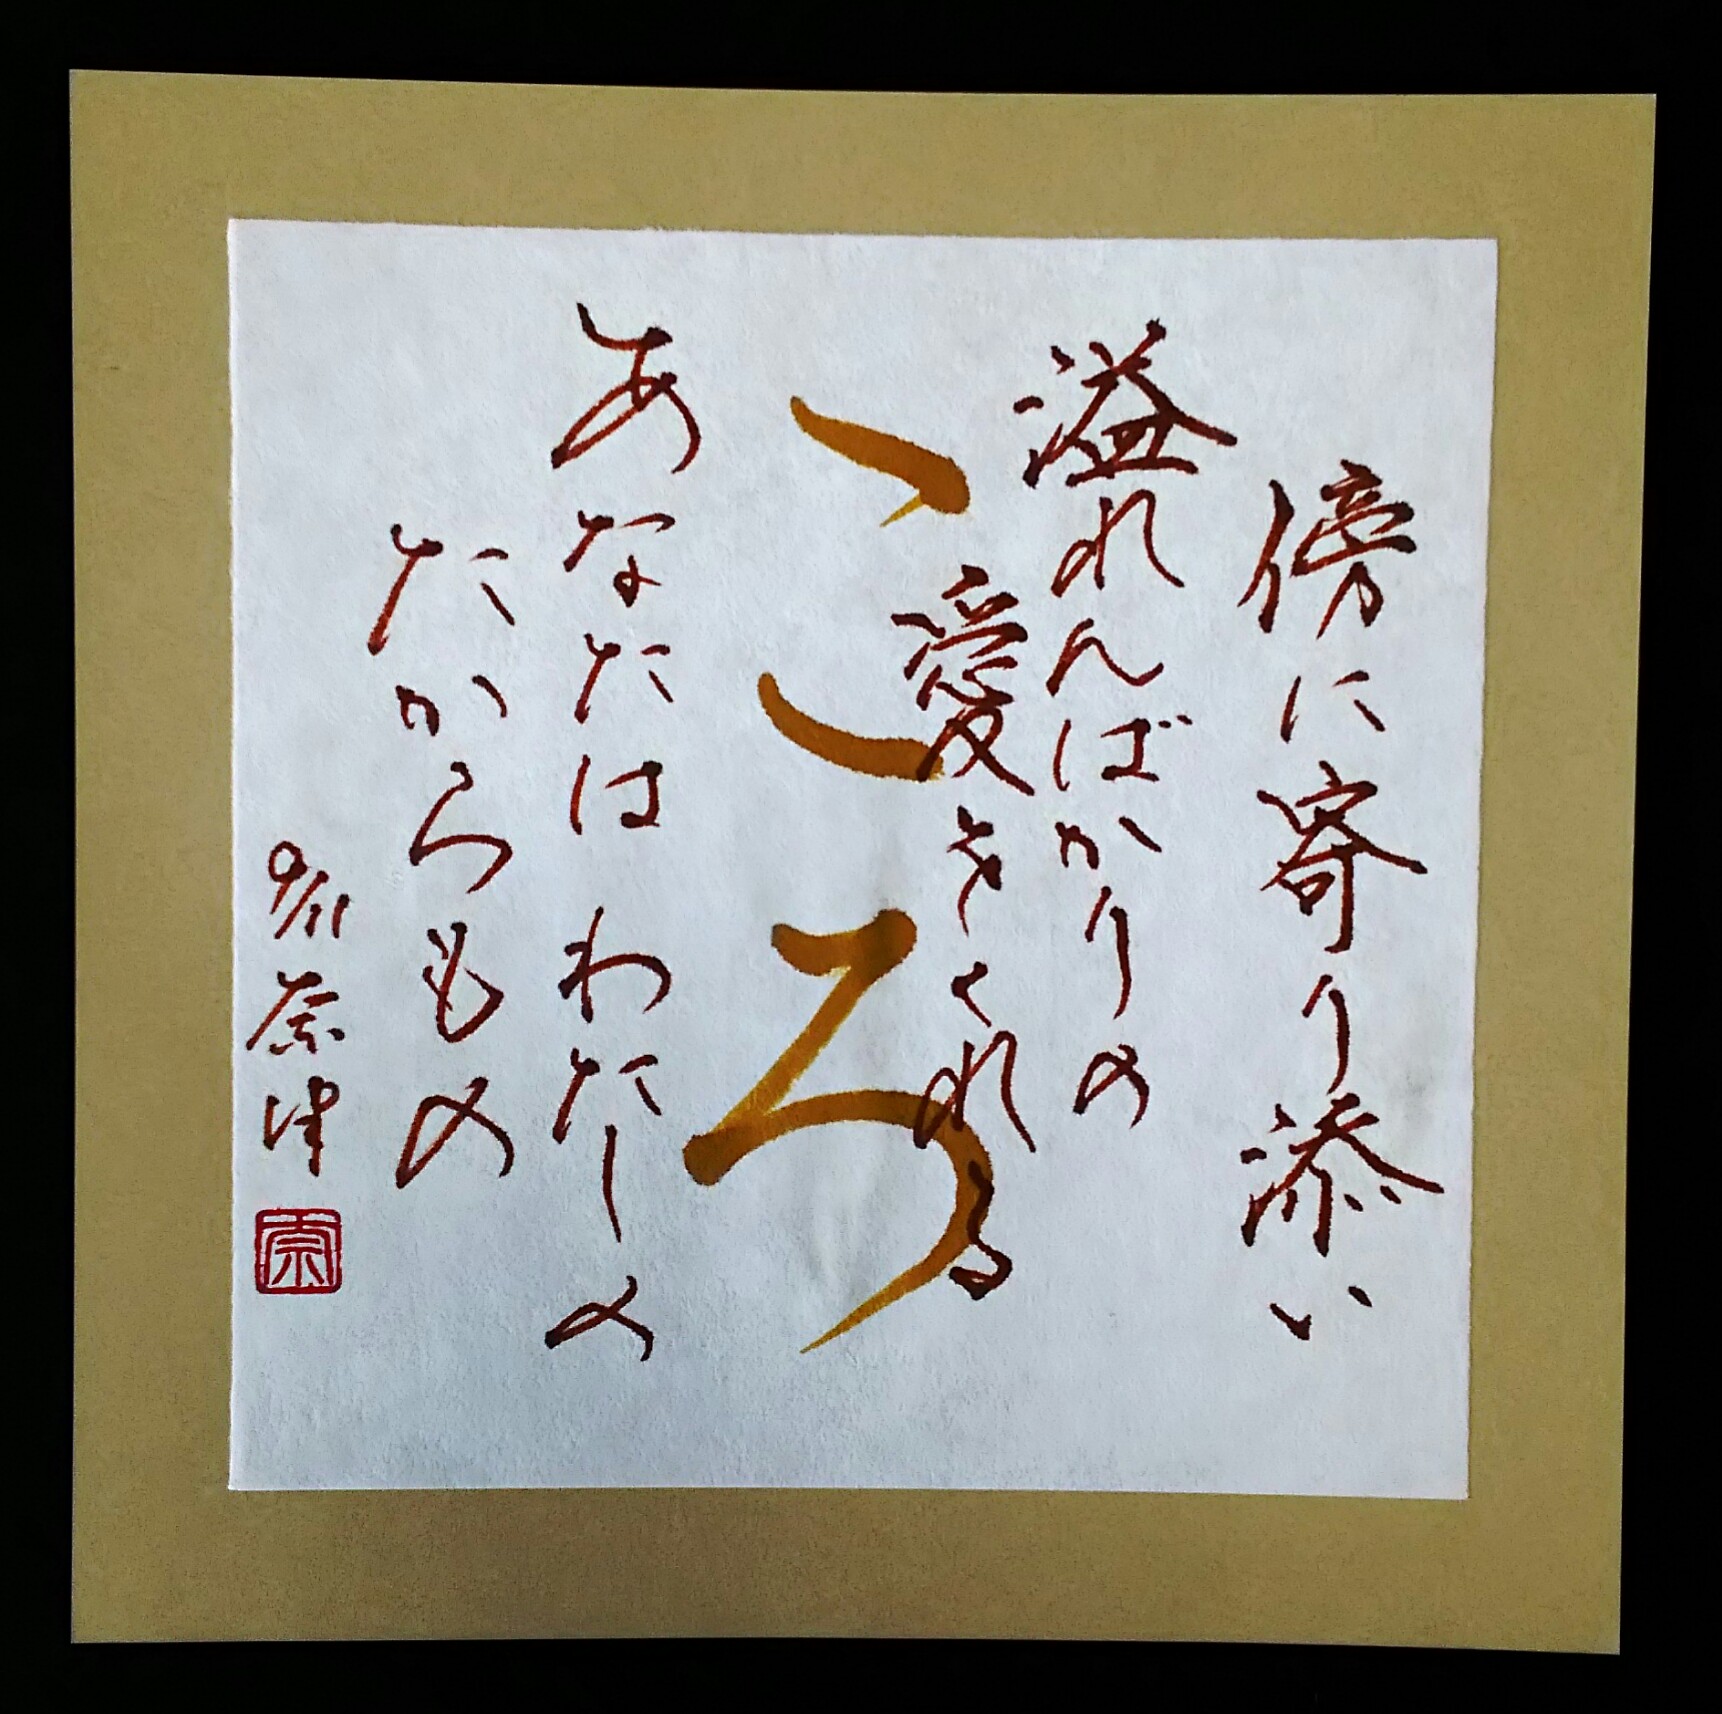 傍に寄り添い
溢れんばかりの
愛をくれる
こころ
あなたはわたしの
たからもの
奈津